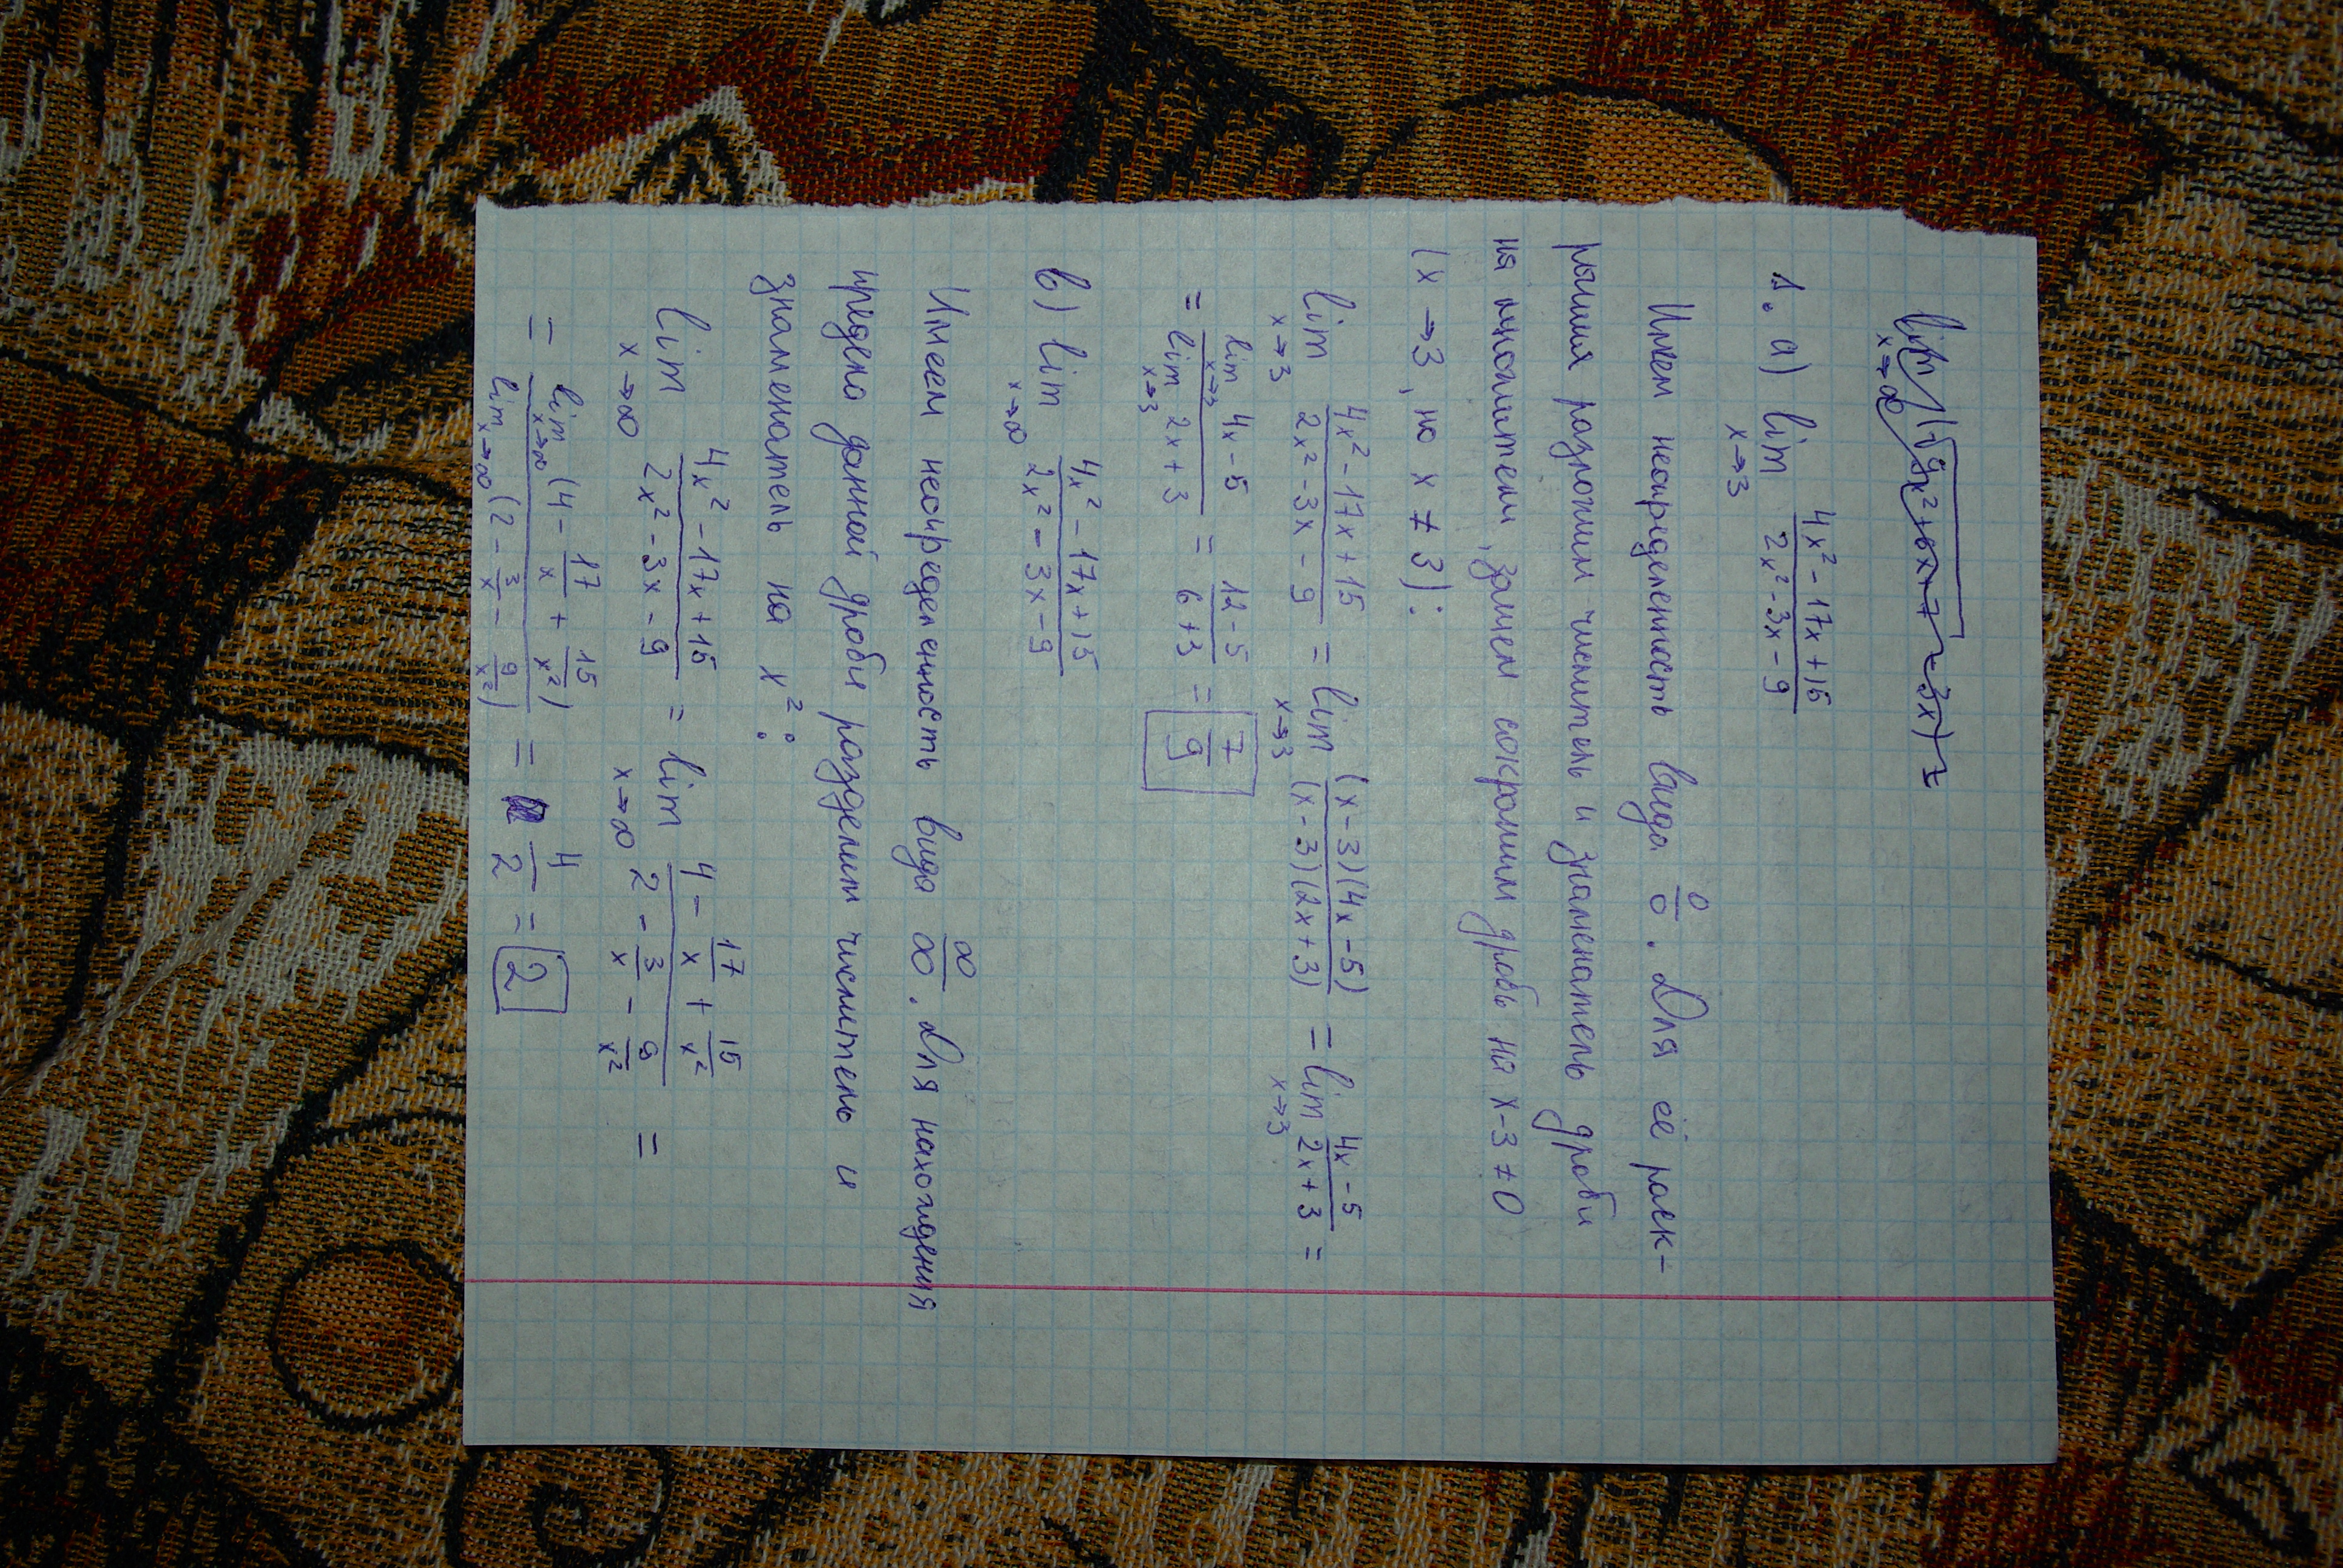 lim (√9x²+6x-7 - 3x) =
x→∞
1. a) lim (4x² - 17x + 15)/(2x² - 3x - 9)
x→3
Имеем неопределенность вида 0/0. Для её раск-
рытия разложим числитель и знаменатель дроби
на множители, затем сократим дробь на x-3≠0
(x→3, но x ≠ 3):
lim (4x² - 17x + 15)/(2x² - 3x - 9) = lim ((x-3)(4x-5))/((x-3)(2x+3)) = lim (4x-5)/(2x+3) =
x→3 x→3 x→3
= (lim 4x-5)/(lim 2x+3) = (12-5)/(6+3) = 7/9
x→3 x→3
в) lim (4x² - 17x + 15)/(2x² - 3x - 9)
x→∞
Имеем неопределенность вида ∞/∞. Для нахождения
предела данной дроби разделим числитель и
знаменатель на x²:
lim (4x² - 17x + 15)/(2x² - 3x - 9) = lim (4 - 17/x + 15/x²)/(2 - 3/x - 9/x²) =
x→∞ x→∞
= (lim (4 - 17/x + 15/x²))/(lim (2 - 3/x - 9/x²)) = 4/2 = 2
x→∞ x→∞